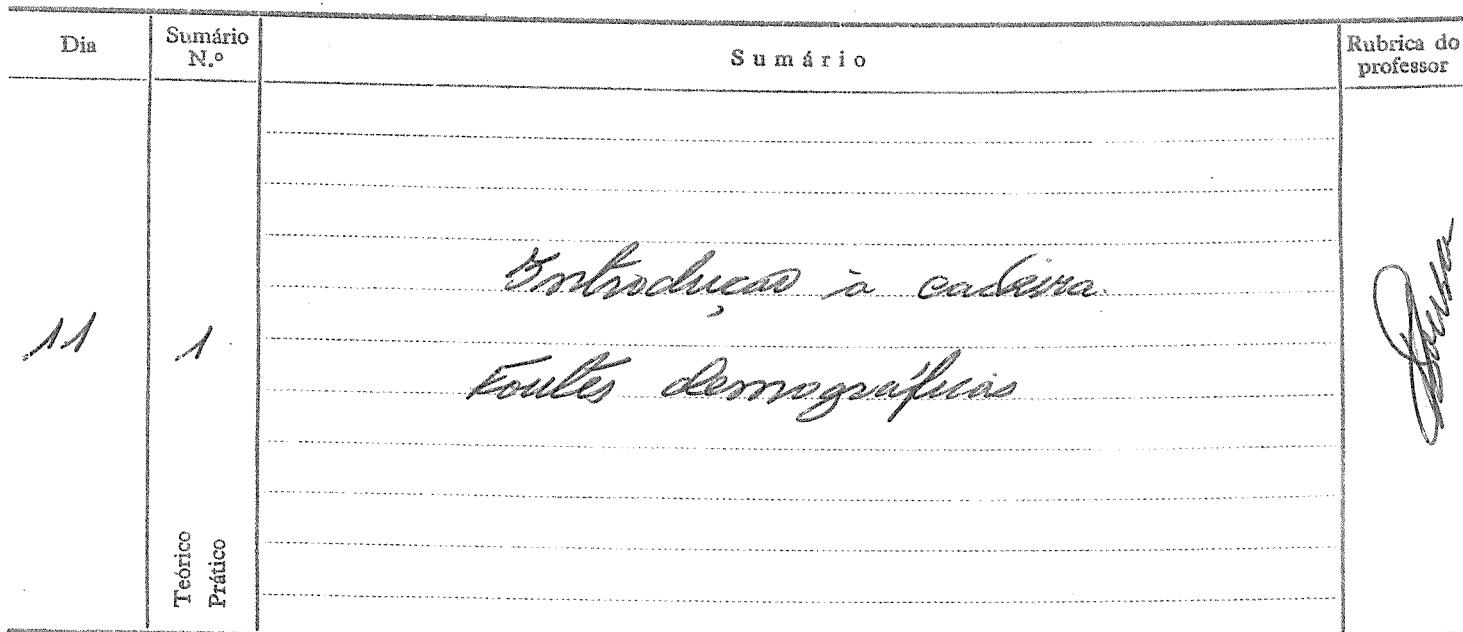 Dia
Sumário
N.º
Sumário
Rubrica do
professor
11
1
Introdução à cadeira.
Fontes demográficas
Teórico
Prático